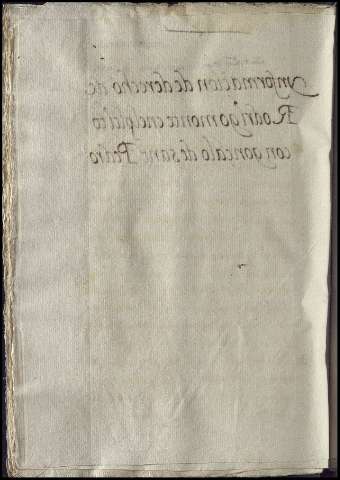 ynformacion de derecho de
Rodrigo monte en el pleito
con gonçalo de sant Pedro